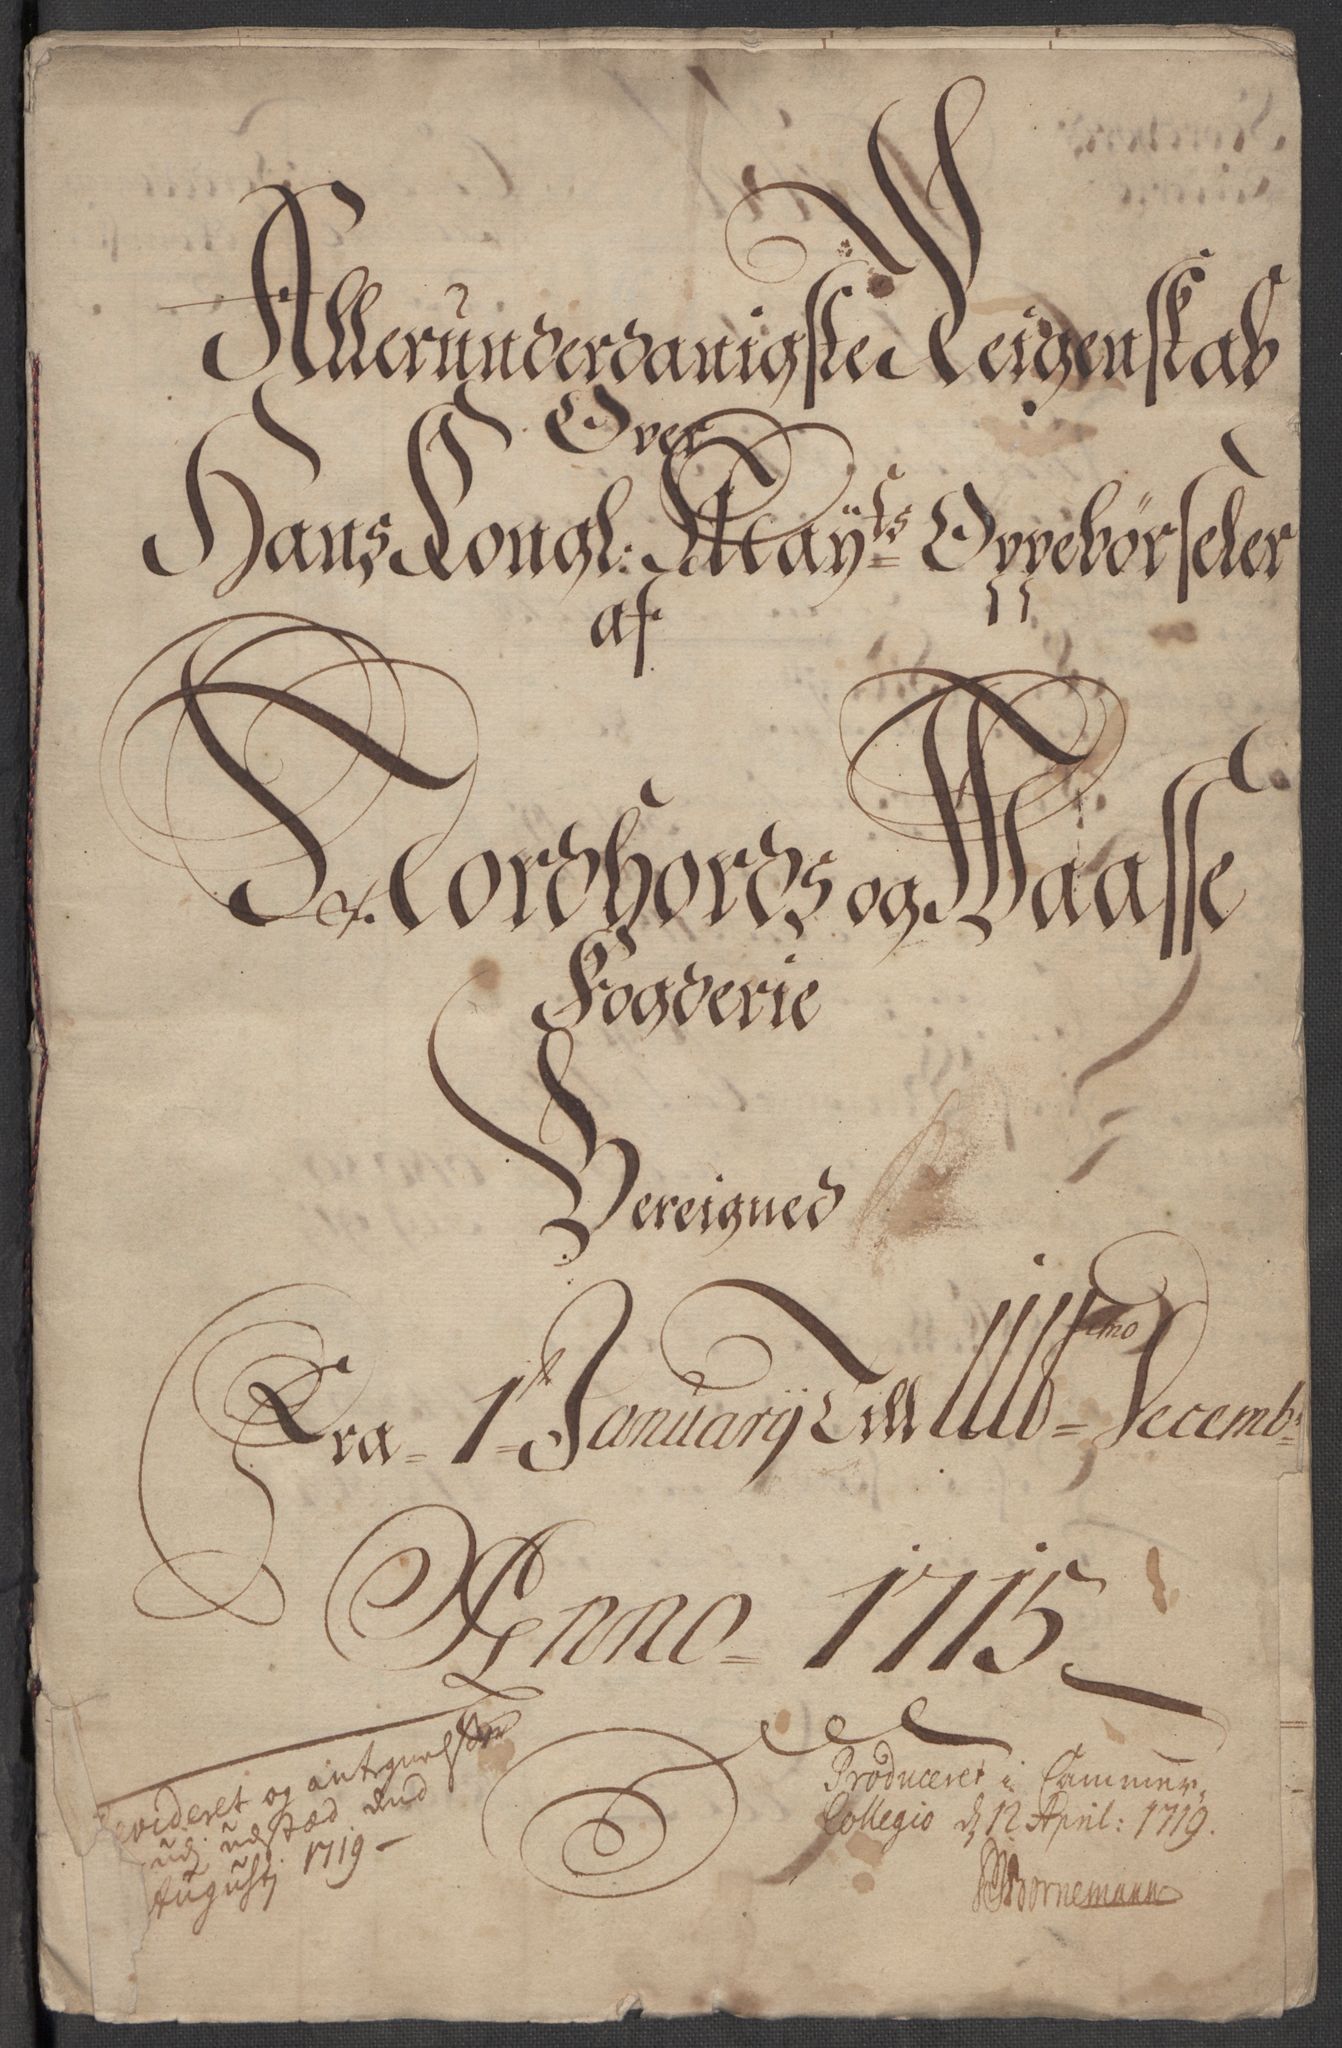 Allerunderdanigste Reigenskab
Over
Hans Kongl: Mayts Oppebörseler
af
Nordhords og Waasse
Fogderie
Bereigned
Fra 1t January Till Ultimo Decemb:
Anno 1715
Revideret og
udj
Augustj 1719
Produceret i Cammer
Collegio d 12 April: 1719.
Bornemann